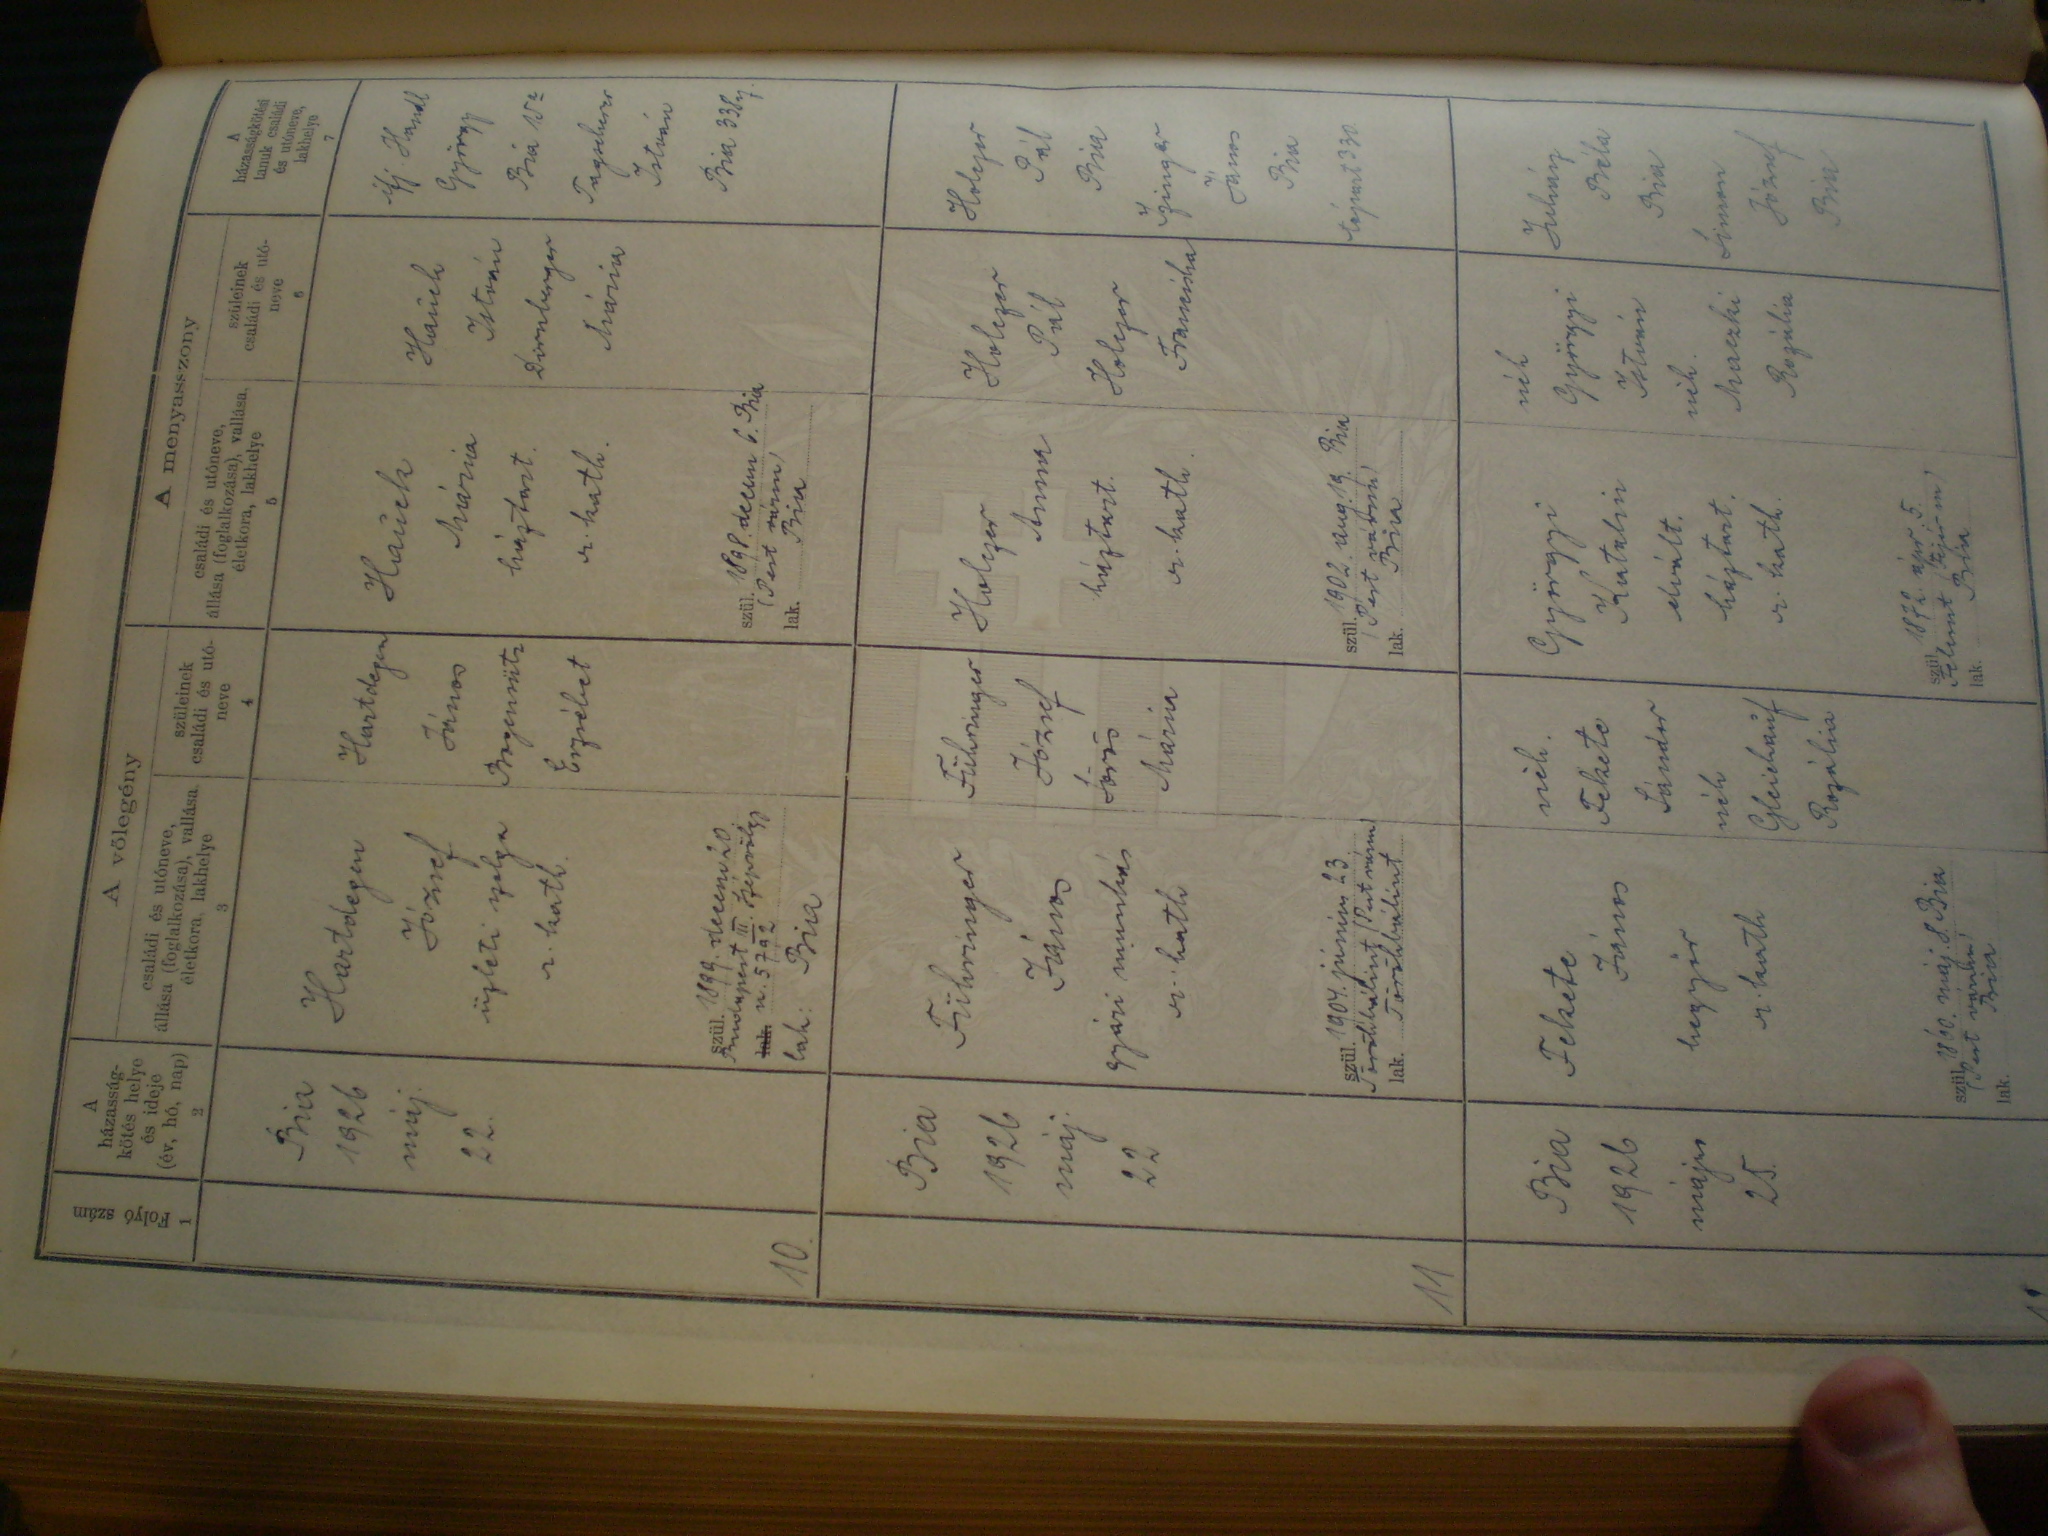 Folyó szám
1
A házasság-
kötés helye
és ideje
(év, hó, nap)
2
A vőlegény
családi és utóneve,
állása (foglalkozása), vallása,
életkora, lakhelye
3
szüleinek
családi és utó-
neve
4
A menyasszony
családi és utóneve,
állása (foglalkozása), vallása,
életkora, lakhelye
5
szüleinek
családi és utó-
neve
6
A
házasságkötési
tanuk családi
és utóneve,
lakhelye
7
10.
Bia
1926
máj.
22.
Hartdegen
József
üzleti szolga
r. kath.
szül. 1899. decem 20
Budapest III.
lak n. 5792
lak: Bia
Hartdegen
János
Erzsébet
Hauck
Mária
háztart.
r. kath.
szül. 1898. decem 6. Bia
(Pest várm)
lak. Bia
Hauck
István
Dornberger
Mária
ifj Handl
György
Bia
István
Bia
11
Bia
1926
máj.
22
Führinger
János
gyári munkás
r. kath
szül. 1904. június 23
Törökbálint (Pest várm)
lak. Törökbálint
Führinger
József
Mária
Holczer
Anna
háztart.
r. kath.
szül. 1902. aug. 19. Bia
(Pest várm)
lak. Bia
Holczer
Pál
Holczer
Franciska
Holczer
Pál
Bia
János
Bia
Bia
1926
május
25.
Fekete
János
r. kath
szül. 1860. máj. 8. Bia
(Pest várm)
lak. Bia
néh.
Fekete
Sándor
néh
Rozália
Györgyi
Katalin
elvált.
háztart.
r. kath.
szül. 1872. ápr 5.
lak. Bia
néh
Györgyi
István
néh.
Rozália
Juhász
Béla
Bia
Simon
József
Bia